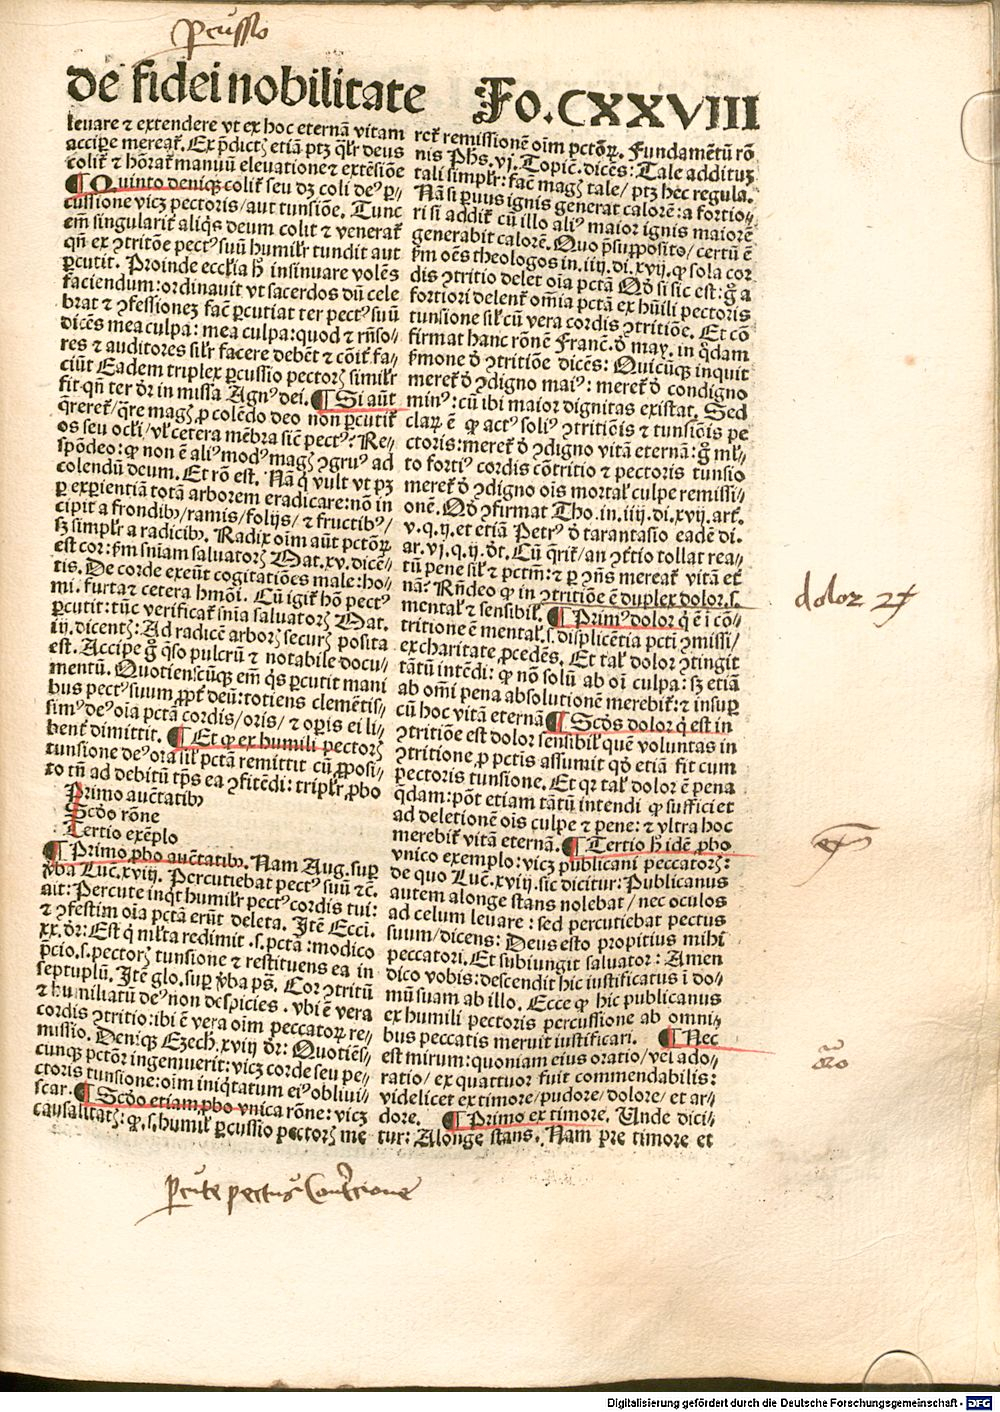 p̄cussio
de fidei nobilitate Fo.CXXVIII
leuare ⁊ extendere vt ex hoc eternā vitam
accipe mereat̄. Ex p̄dictꝭ etiā ptꝫ q̄lr̄ deus
colit̄ ⁊ hōrat̄ manuū eleuatione ⁊ extēsiōe
¶ Quinto deniqꝫ colit̄ seu dꝫ coli deꝰ ꝑ-
cussione vicꝫ pectoris/aut tunsiōe. Tunc
em̄ singularit̄ aliqͥs deum colit ⁊ venerat̄
qn̄ ex ꝯtritōe pectꝰ suū humilr̄ tundit aut
ꝑcutit. Proinde eccl̄ia h̄ insinuare volēs
faciendum:ordinauit vt sacerdos dū cele
brat ⁊ ꝯfessioneꝫ fac̄ ꝑcutiat ter pectꝰ suū
dicēs mea culpa: mea culpa:quod ⁊ rn̄so-
res ⁊ auditores sil̄r facere debēt ⁊ cōit̄ fa-
ciūt Eadem triplex ꝑcussio pectorꝭ simil̄r
fit qn̄ ter dr̄ in missa Agnꝰ dei. ¶ Si aūt
q̄reret̄/q̄re magꝭ ꝓ colēdo deo non ꝑcutit̄
os seu ocl̄i/vl̄ cetera mēbra sic̄ pectꝰ? Re-
spōdeo: ꝙ non ē aliꝰ modꝰ magꝭ ꝯgruꝰ ad
colendū deum. Et rō est. Nā qͥ vult vt pꝫ
ꝑ expientiā totā arborem eradicare:nō in
cipit a frondibꝰ/ramis/folijs/⁊ fructibꝰ/
sꝫ simpl̄r a radicibꝰ. Radix oim̄ aūt pctōꝝ
est cor: ẜm sn̄iam saluatorꝭ Mat.xv. dicē-
tis. De corde exeūt cogitatiōes male:ho-
mi. furta ⁊ cetera hmōi. Cū igit̄ hō pectꝰ
ꝑcutit:tūc verificat̄ sn̄ia saluatorꝭ Mat.
iij. dicentꝭ: Ad radicē arborꝭ securꝭ posita
est. Accipe g̊ qͣso pulcrū ⁊ notabile docu-
mentū. Quotienscūqꝫ em̄ qͥs ꝑcutit mani
bus pectꝰ suum ꝓpt̄ deū:totiens clemētis-
simꝰ deꝰ oīa pctā cordis/oris/⁊ oꝑis ei li-
bent̄ dimittit. ¶ Et ꝙ ex humili pectorꝭ
tunsione deꝰ oīa sil̄ pctā remittit cū ꝓposi-
to tn̄ ad debitū tp̄s ea ꝯfitēdi: tripl̄r ꝓbo
Primo auc̄tatibꝰ
Scd̄o rōne
Tertio exēplo
¶ Primo ꝓbo auc̄tatibꝰ. Nam Aug. suꝑ
v̄ba Luc̄.xviij. Percutiebat pectꝰ suū ⁊c̄.
ait: Percute inqͥt humil̄r pectꝰ cordis tui:
⁊ ꝯfestim oīa pctā erūt deleta. Itē Ecci.
xx. dr̄: Est qͥ ml̄ta redimit .s. pctā :modico
p̄cio.s. pectorꝭ tunsione ⁊ restituens ea in
septuplū. Itē glo. suꝑ v̄ba pš. Cor ꝯtritū
⁊ humiliatū deꝰ non despicies . vbi ē vera
cordis ꝯtritio: ibi ē vera oim̄ peccatoꝝ re-
missio. Deniqꝫ Ezech.xviij dr̄: Quotiēs-
cunqꝫ pctōr̄ ingemuerit: vicꝫ corde seu pe-
ctoris tunsione:oim̄ iniqͥtatum eiꝰ obliui-
scar. ¶ Scd̄o etiam ꝓbo vnica rōne: vicꝫ
causalitatꝭ: ꝙ.s. humil̄ ꝑcussio pectorꝭ me
ret̄ remissionē oim̄ pctōꝝ. Fundamētū rō
nis Ph̄s. vj. Topic̄. dicēs: Tale additūꝫ
tali simpl̄r: fac̄ magꝭ tale/ ptꝫ hec regula.
Nā si paruus ignis generat calorē: a fortio-
ri si addit̄ cū illo aliꝰ maior ignis maiorē
generabit calorē. Quo p̄supposito/ certū ē
ẜm oēs theologos in.iiij.di.xvij.ꝙ sola cor
dis ꝯtritio delet oīa pctā Qd̄ si sic est: g̊ a
fortiori delent̄ om̄ia pctā ex hūili pectoris
tunsione sil̄ cū vera cordis ꝯtritiōe. Et cō
firmat hanc rōnē Franc̄. d̄ may. in qͦdam
ẜmone d̄ ꝯtritiōe dicēs: Quicūqꝫ inquit
meret̄ d̄ ꝯdigno maiꝰ: meret̄ d̄ condigno
minꝰ: cū ibi maior dignitas existat. Sed
claꝝ ē ꝙ actꝰ soliꝰ ꝯtritiōis ⁊ tunsiōis pe
ctoris:meret̄ d̄ ꝯdigno vitā eternā: g̊ ml̄-
to fortiꝰ cordis cōtritio ⁊ pectoris tunsio
meret̄ d̄ ꝯdigno oīs mortal̄ culpe remissi-
onē. Qd̄ ꝯfirmat Tho.in.iiij.di.xvij.art̄.
v.q.ij. et etiā Petrꝰ d̄ tarantasio eadē di.
ar.vj.q.ij.dt̄. Cū q̄rit̄/an ꝯt̄tio tollat rea-
tū pene sil̄ ⁊ pctm̄: ⁊ ꝑ ꝯn̄s mereat̄ vitā et̄
nā: Rn̄deo ꝙ in ꝯtritiōe ē duplex dolor.s.
mental̄ ⁊ sensibil̄. ¶ Primꝰ dolor qͥ ē ī cō-
tritione ē mental̄.s. displicētia pcti ꝯmissi/
ex charitate ꝓcedēs. Et tal̄ dolor ꝯtingit
tātū intēdi: ꝙ nō solū ab oī culpa: sꝫ etiā
ab om̄i pena absolutionē merebit̄: ⁊ insuꝑ
cū hoc vitā eternā ¶ Scd̄s dolor qͥ est in
ꝯtritiōe est dolor sensibil̄ quē voluntas in
ꝯtritione ꝓ pctis assumit qd̄ etiā fit cum
pectoris tunsione. Et qꝛ tal̄ dolor ē pena
qͣdam: pōt etiam tātū intendi ꝙ sufficiet
ad deletionē oīs culpe ⁊ pene: ⁊ vltra hoc
merebit̄ vitā eternā. ¶ Tertio h̄ idē ꝓbo
vnico exemplo: vicꝫ publicani peccatorꝭ:
de quo Luc̄.xviij.sic dicitur: Publicanus
autem alonge stans nolebat/ nec oculos
ad celum leuare : sed percutiebat pectus
suum/dicens: Deus esto propitius mihi
peccatori. Et subiungit saluator: Amen
dico vobis:descendit hic iustificatus ī do-
mū suam ab illo. Ecce ꝙ hic publicanus
ex humili pectoris percussione ab omni-
bus peccatis meruit iustificari. ¶ Nec
est mirum: quoniam eius oratio/ vel ado-
ratio/ ex quattuor fuit commendabilis:
videlicet ex timore/ pudore/ dolore/ et ar-
dore. ¶ Primo ex timore. Unde dici-
tur: Alonge stans. Nam pre timore et
dolor 2x
p̄cute pectus cont̄cione
Digitalisierung gefördert durch die Deutsche Forschungsgemeinschaft - DFG